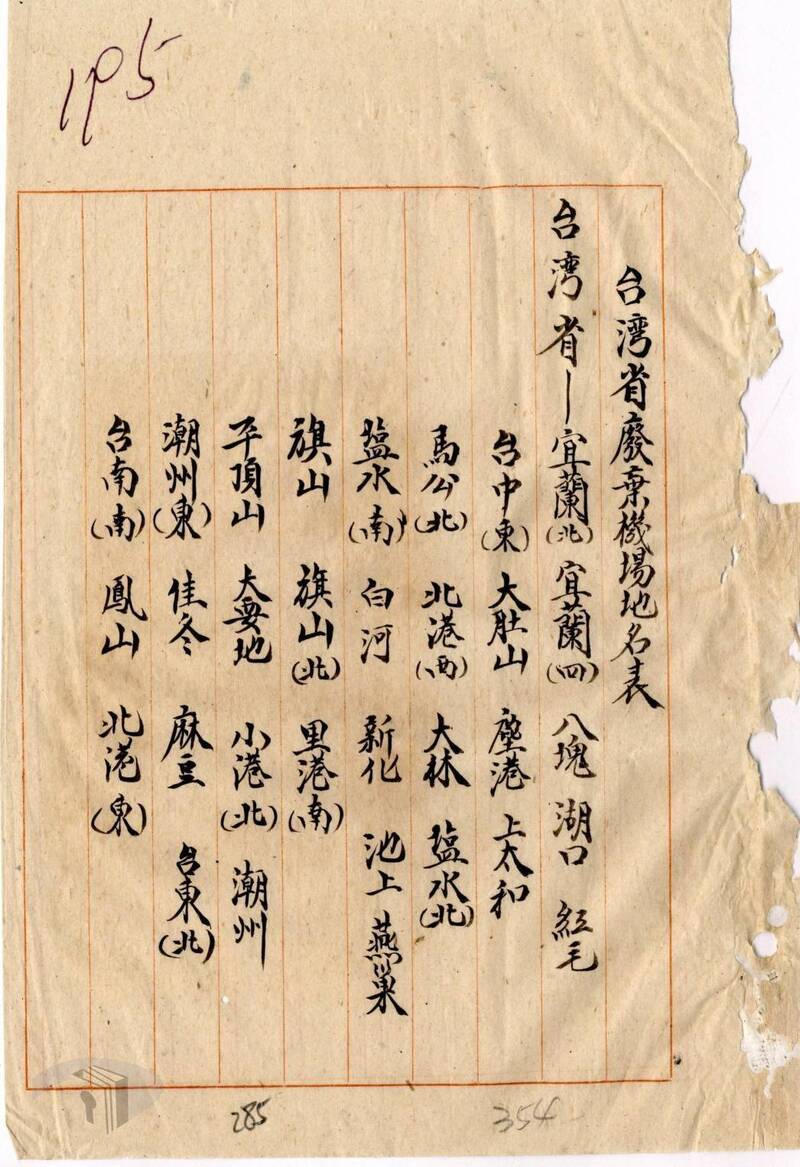 195
台湾省廢棄機場地名表
台湾省—宜蘭(北) 宜蘭(四) 八塊 湖口 紅毛
台中(東) 大肚山 塩港 上太和
馬公(北) 北港(西) 大林 塩水(北)
塩水(南) 白河 新化 池上 燕巢
旗山 旗山(北) 里港(南)
平頂山 大要地 小港(北) 潮州
潮州(東) 佳冬 麻豆 台東(北)
台南(南) 鳳山 北港(東)
285
354